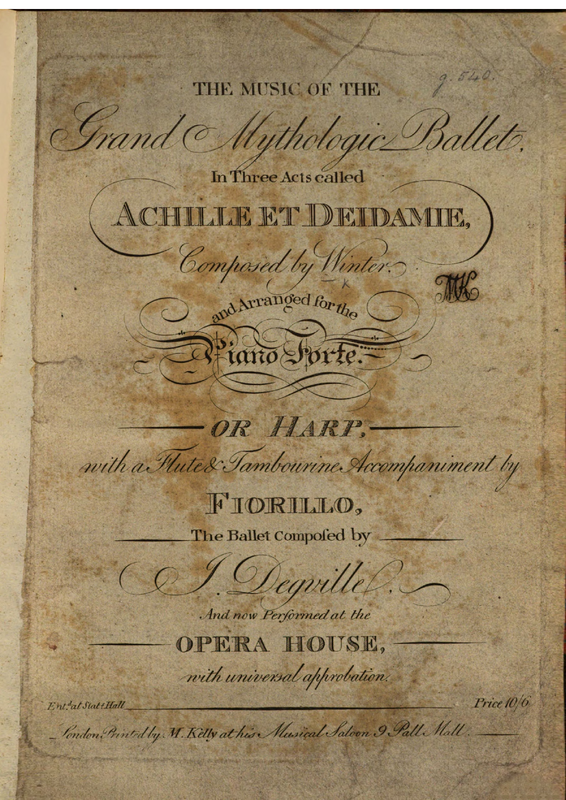 g.540.
THE MUSIC OF THE
Grand Mythologic Ballet,
In Three Acts called
ACHILLE ET DEIDAMIE,
Composed by Winter.
MK
and Arranged for the
Piano Forte.
OR HARP,
with a Flute & Tambourine Accompaniment by
FIORILLO,
The Ballet Compoſed by
J. Degville.
And now Performed at the
OPERA HOUSE,
with universal approbation.
Ent.d at Stat.s Hall
Price 10/6
London, Printed by M. Kelly at his Musical Saloon 9 Pall Mall.